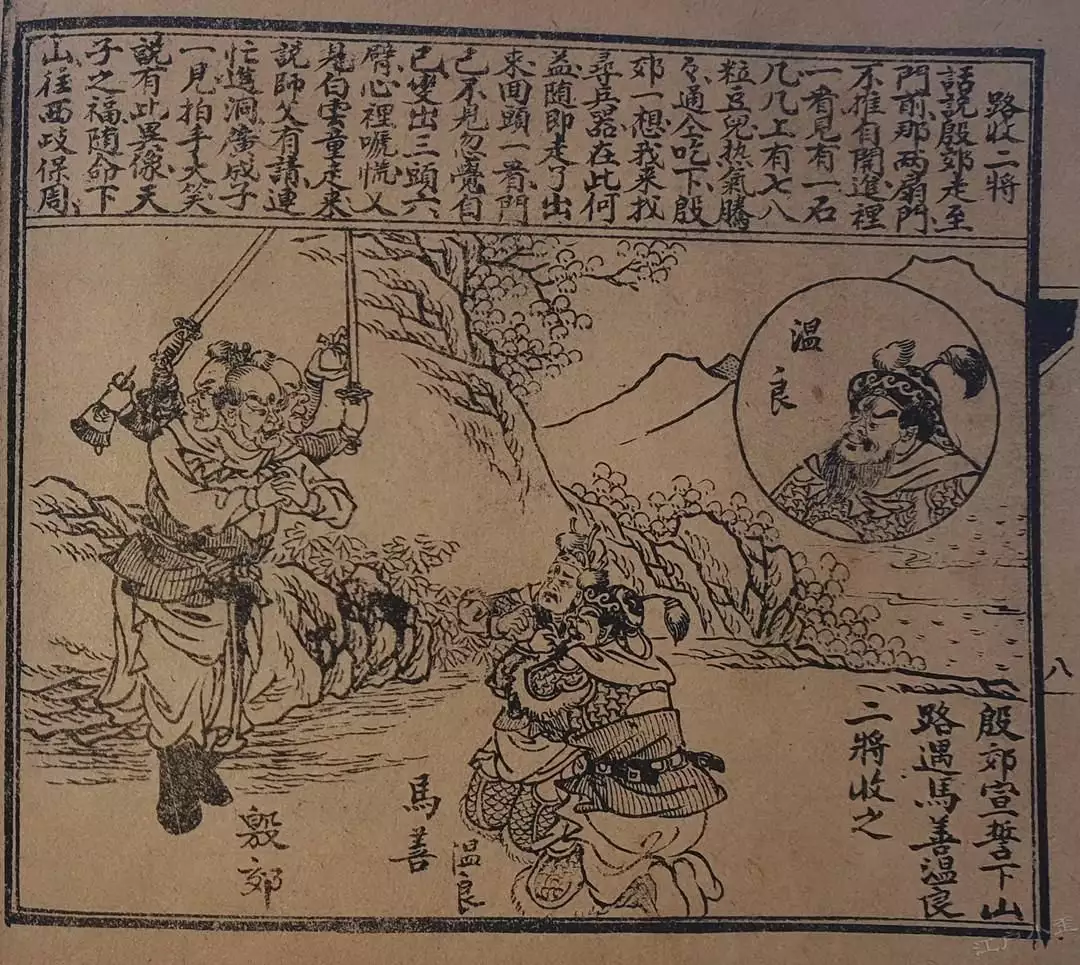 路收二將
話說殷郊走至
門前那两扇門
不推自開進裡
一看見有一石
几几上有七八
粒豆兒热氣騰
々通全吃下殷
郊一想我来找
尋兵器在此何
益随即走了出
来回頭一看門
已不見忽覺自
已变出三頭六
臂心裡慌又
見白雲童走来
說師父有請連
忙進洞廣成子
一見拍手大笑
說有此異像天
子之福随命下
山往西岐保周
温良
八
殷郊宣誓下山
路遇馬善温良
二將收之
温良
馬善
殷郊